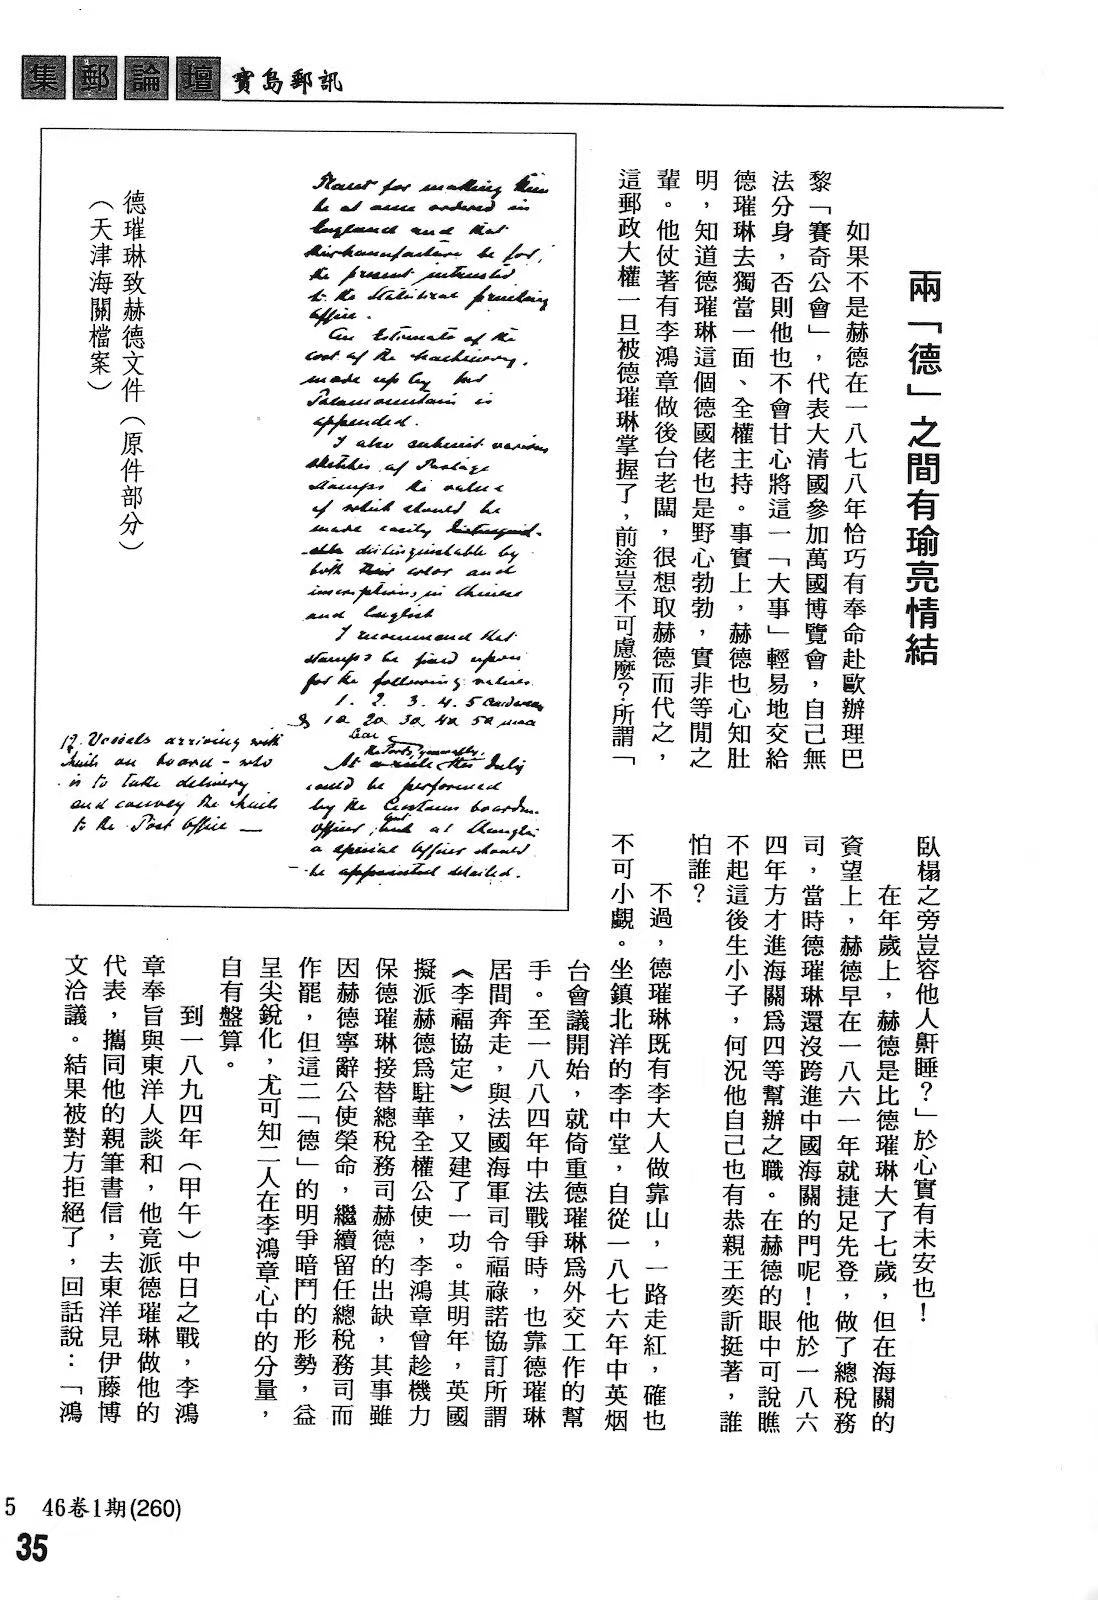 集郵論壇 寶島郵訊
兩「德」之間有瑜亮情結
如果不是赫德在一八七八年恰巧有奉命赴歐辦理巴
黎「賽奇公會」，代表大清國參加萬國博覽會，自己無
法分身，否則他也不會甘心將這一「大事」輕易地交給
德璀琳去獨當一面、全權主持。事實上，赫德也心知肚
明，知道德璀琳這個德國佬也是野心勃勃，實非等閒之
輩。他仗著有李鴻章做後台老闆，很想取赫德而代之，
這郵政大權一旦被德璀琳掌握了，前途豈不可慮麼？所謂「
臥榻之旁豈容他人鼾睡？」於心實有未安也！
在年歲上，赫德是比德璀琳大了七歲，但在海關的
資望上，赫德早在一八六一年就捷足先登，做了總稅務
司，當時德璀琳還沒跨進中國海關的門呢！他於一八六
四年方才進海關爲四等幫辦之職。在赫德的眼中可說瞧
不起這後生小子，何況他自己也有恭親王奕訢挺著，誰
怕誰？
不過，德璀琳既有李大人做靠山，一路走紅，確也
不可小覷。坐鎮北洋的李中堂，自從一八七六年中英烟
台會議開始，就倚重德璀琳爲外交工作的幫
手。至一八八四年中法戰爭時，也靠德璀琳
居間奔走，與法國海軍司令福祿諾協訂所謂
《李福協定》，又建了一功。其明年，英國
擬派赫德爲駐華全權公使，李鴻章曾趁機力
保德璀琳接替總稅務司赫德的出缺，其事雖
因赫德寧辭公使榮命，繼續留任總稅務司而
作罷，但這二「德」的明爭暗鬥的形勢，益
呈尖銳化，尤可知二人在李鴻章心中的分量，
自有盤算。
到一八九四年（甲午）中日之戰，李鴻
章奉旨與東洋人談和，他竟派德璀琳做他的
代表，攜同他的親筆書信，去東洋見伊藤博
文洽議。結果被對方拒絕了，回話說：「鴻
for making them
be at once ordered in
England and that
their manufacture be for
the present intrusted
to the Statistical printing
Office.
An Estimate of the
cost of the machinery,
made up by
Palamountain is
appended.
I also submit various
sketches of Postage
Stamps the value
of which should be
made easily distinguish-
able distinguishable by
both their color and
inscriptions, in Chinese
and English
I recommend that
stamps be fixed upon
for the following values
1. 2. 3. 4. 5 Candareens
& 1a 2a 3a 4a 5a mace
the Ports, generally,
At this duty
could be performed
by the Customs boarding
Officer, but at Shanghai
a special Officer should
be appointed detailed.
12. Vessels arriving with
Mails on board - who
is to take delivery
and convey the Mails
to the Post Office —
德璀琳致赫德文件（原件部分）
（天津海關檔案）
5 46卷1期(260)
35